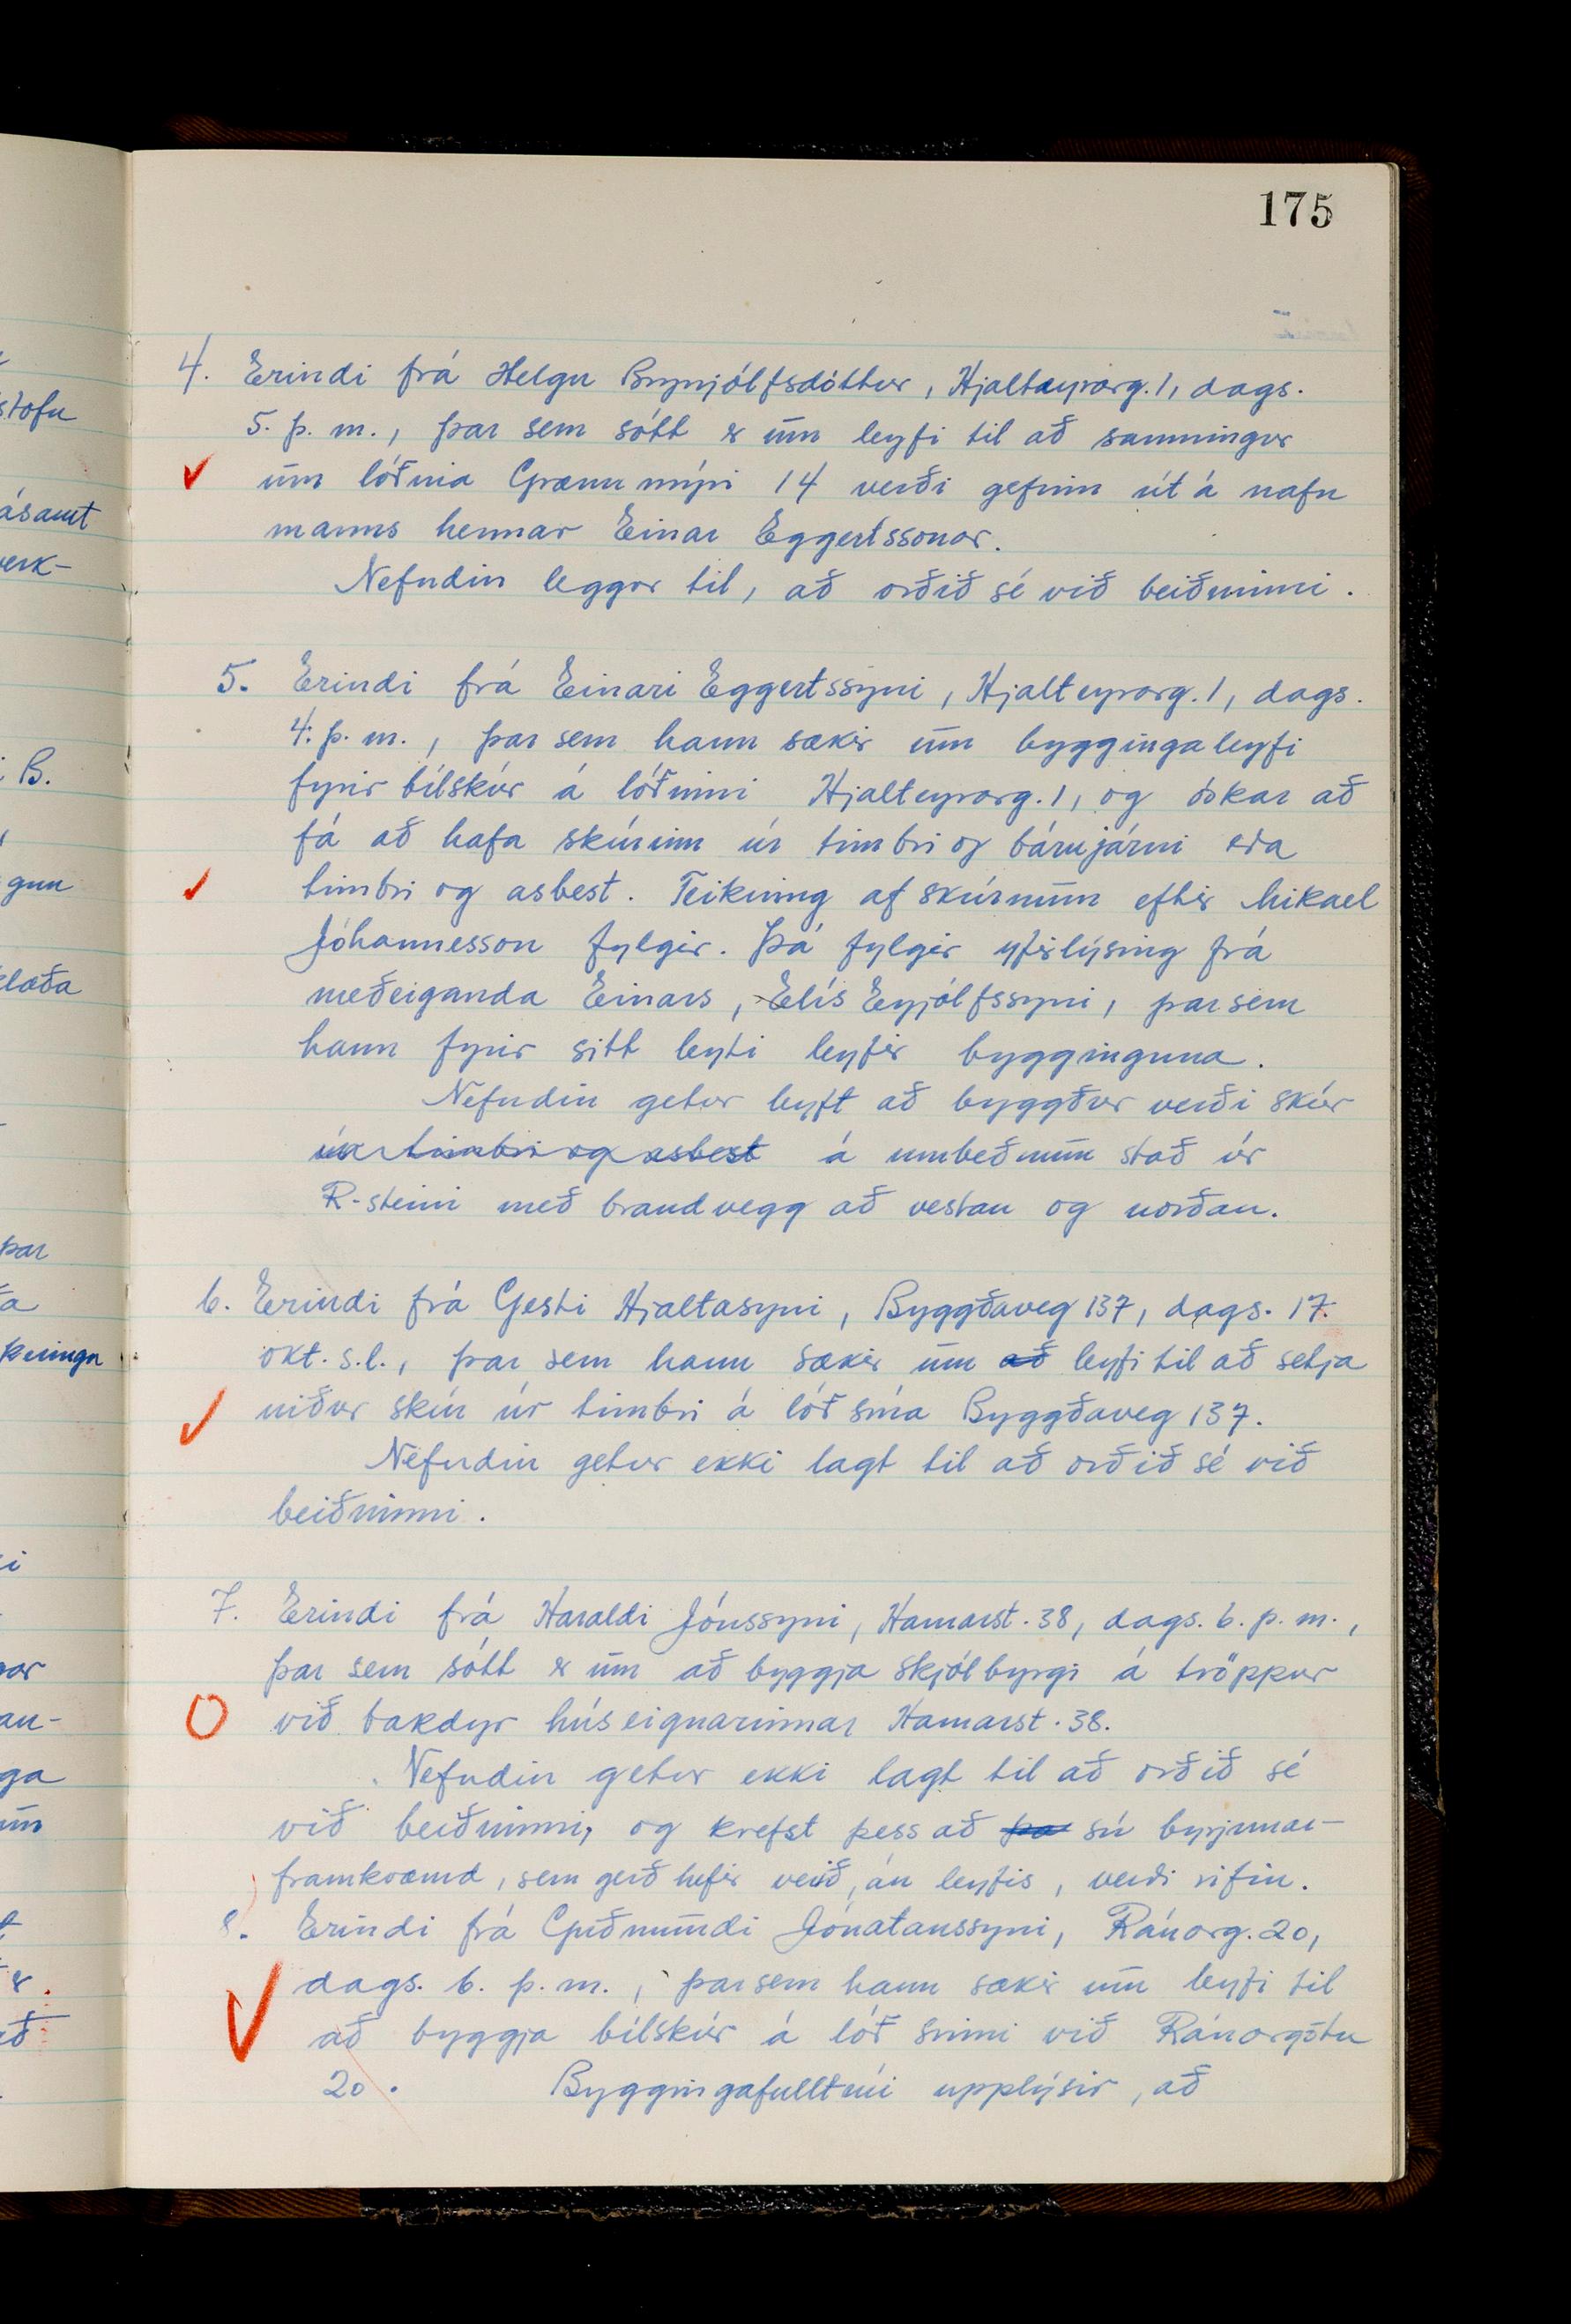 175
4. Erindi frá Helgu Brynjólfsdóttur, Hjalteyrarg. 1, dags.
5. þ. m., þar sem sótt er um leyfi til að samningur
um lóðina Grænumýri 14 verði gefinn út á nafn
manns hennar Einar Eggertssonar.
Nefndin leggur til, að orðið sé við beiðninni.
5. Erindi frá Einari Eggertssyni, Hjalteyrarg. 1, dags.
4. þ. m., þar sem hann sækir um byggingaleyfi
fyrir bílskúr á lóðinni Hjalteyrarg. 1, og óskar að
fá að hafa skúrinn úr timbri og bárujárni eða
timbri og asbest. Teikning af skúrnum eftir Mikael
Jóhannesson fylgir. Þá fylgir yfirlýsing frá
meðeiganda Einars, Elís Eyjólfssyni, þar sem
hann fyrir sitt leyti leyfir bygginguna.
Nefndin getur leyft að byggður verði skúr
úr timbri og asbest á umbeðnum stað úr
R-steini með brandvegg að vestan og norðan.
6. Erindi frá Gesti Hjaltasyni, Byggðaveg 137, dags. 17.
okt. s.l., þar sem hann sækir um að leyfi til að setja
niður skúr úr timbri á lóð sína Byggðaveg 137.
Nefndin getur ekki lagt til að orðið sé við
beiðninni.
7. Erindi frá Haraldi Jónssyni, Hamarst. 38, dags. 6. þ. m.,
þar sem sótt er um að byggja skjólbyrgi á tröppur
við bakdyr húseignarinnar Hamarst. 38.
Nefndin getur ekki lagt til að orðið sé
við beiðninni, og krefst þess að þa sú byrjunar-
framkvæmd, sem gerð hefir verið, án leyfis, verði rifin.
8. Erindi frá Guðmundi Jónatanssyni, Ránarg. 20,
dags. 6. þ. m., þar sem hann sækir um leyfi til
að byggja bílskúr á lóð sinni við Ránargötu
20. Byggingafulltrúi upplýsir, að